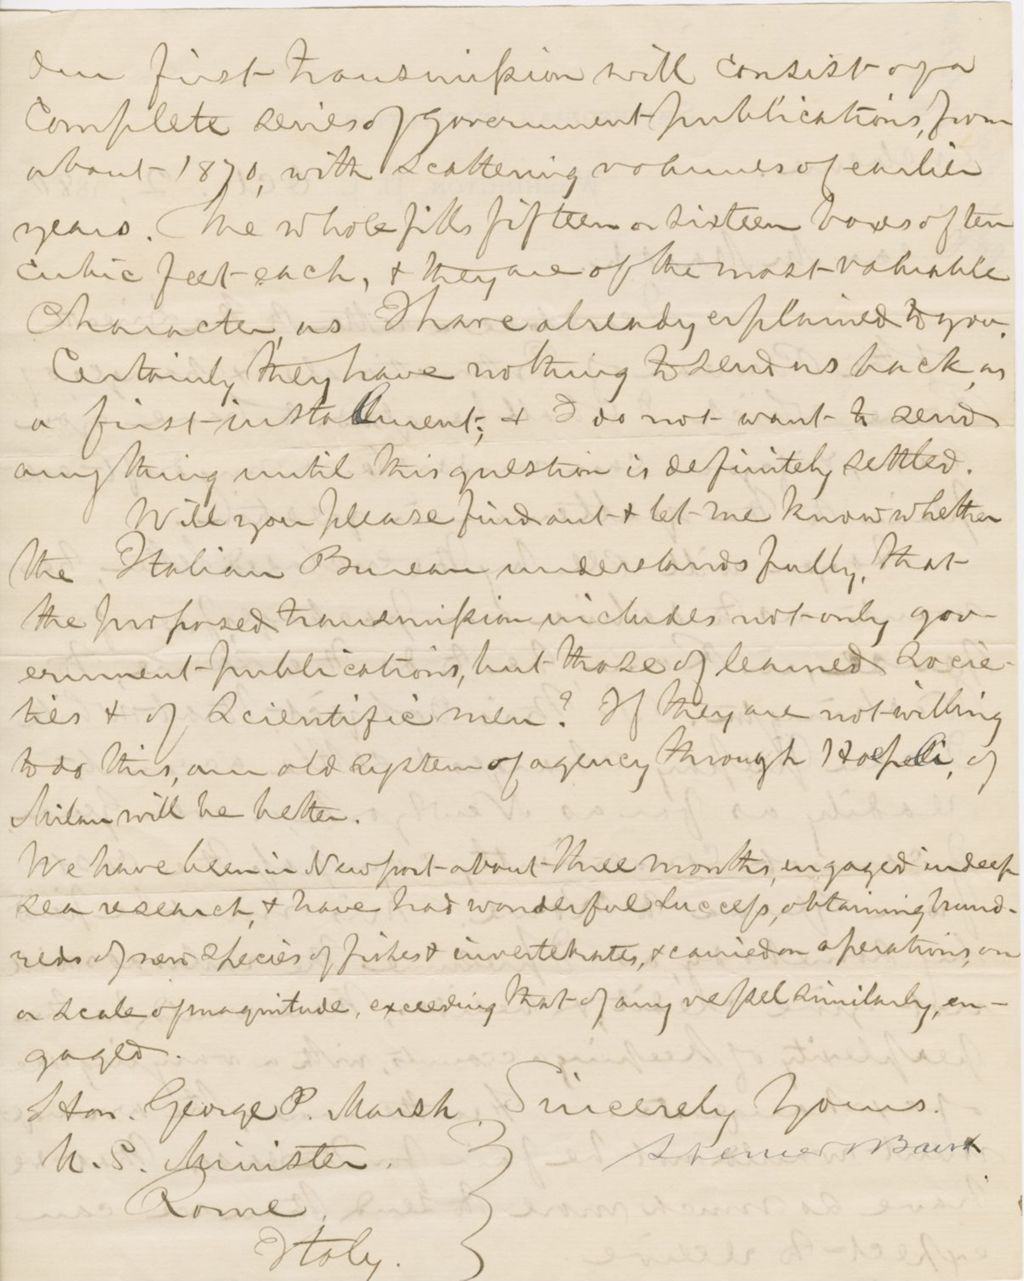 Our first transmission will consist of a
complete series of government publications, from
about 1870, with scattering volumes of earlier
years. The whole fills fifteen or sixteen boxes of ten
cubic feet each, & they are of the most valuable
character, as I have already explained to you.
Certainly they have nothing to send us back, as
a first installment; & I do not want to send
anything until this question is definitely settled.
Will you please find out & let me know whether
the Italian Bureau understands fully, that
the proposed transmission includes not only gov-
ernment publications, but those of learned socie-
ties & of scientific men? If they are not willing
to do this, our old system of agency through Hoepli, of
Milan will be better.
We have been in Newport about three months, engaged in deep
sea research, & have had wonderful success, obtaining hund-
reds of new species of fishes & invertebrates, & carried on operations, on
a scale of magnitude, exceeding that of any vessel similarly, en-
gaged.
Hon. George P. Marsh Sincerely Yours.
U. S. Minister. Spencer F Baird
Rome,
Italy.